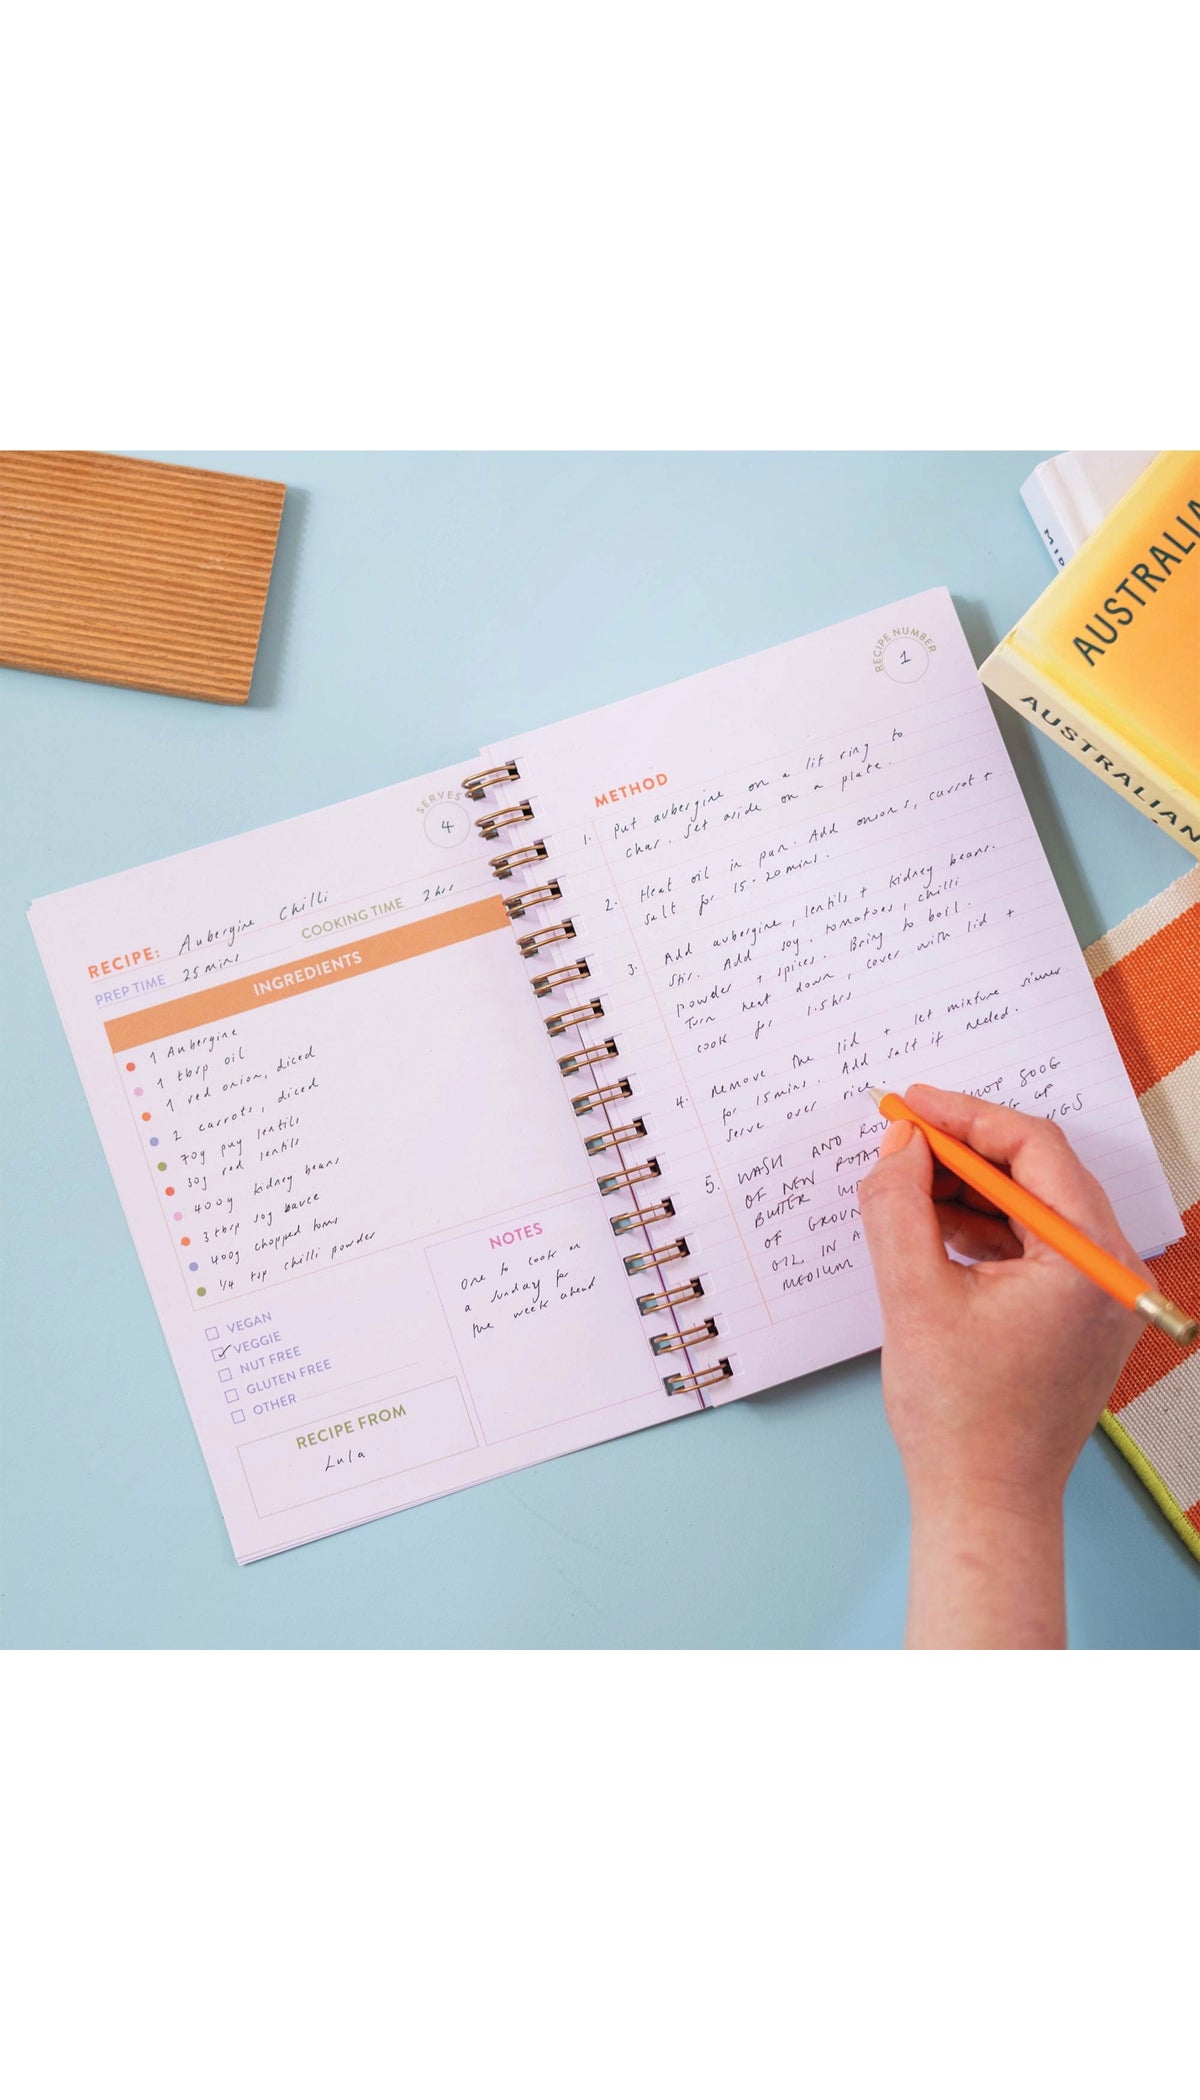 SERVES
4
RECIPE: Aubergine Chilli
PREP TIME 25 mins COOKING TIME 2 hrs
INGREDIENTS
1 Aubergine
1 tbsp oil
1 red onion, diced
2 carrots, diced
70g puy lentils
30g red lentils
400g kidney beans
3 tbsp soy sauce
400g chopped toms
1/4 tsp chilli powder
VEGAN
VEGGIE
NUT FREE
GLUTEN FREE
OTHER
NOTES
One to cook on
a sunday for
the week ahead
RECIPE FROM
Lula
RECIPE NUMBER
1
METHOD
1. Put aubergine on a lit ring to
char. Set aside on a plate.
2. Heat oil in pan. Add onions, carrot +
salt for 15-20 mins.
3. Add aubergine, lentils + kidney beans.
Stir. Add soy, tomatoes, chilli
powder + spices. Bring to boil.
Turn heat down, cover with lid +
cook for 1.5 hrs
4. Remove the lid + let mixture simmer
for 15 mins. Add salt if needed.
Serve over rice.
5. WASH AND 800G
OF NEW OF
BUTTER
OF
OIL IN A
MEDIUM
AUSTRALIA
AUSTRALIAN